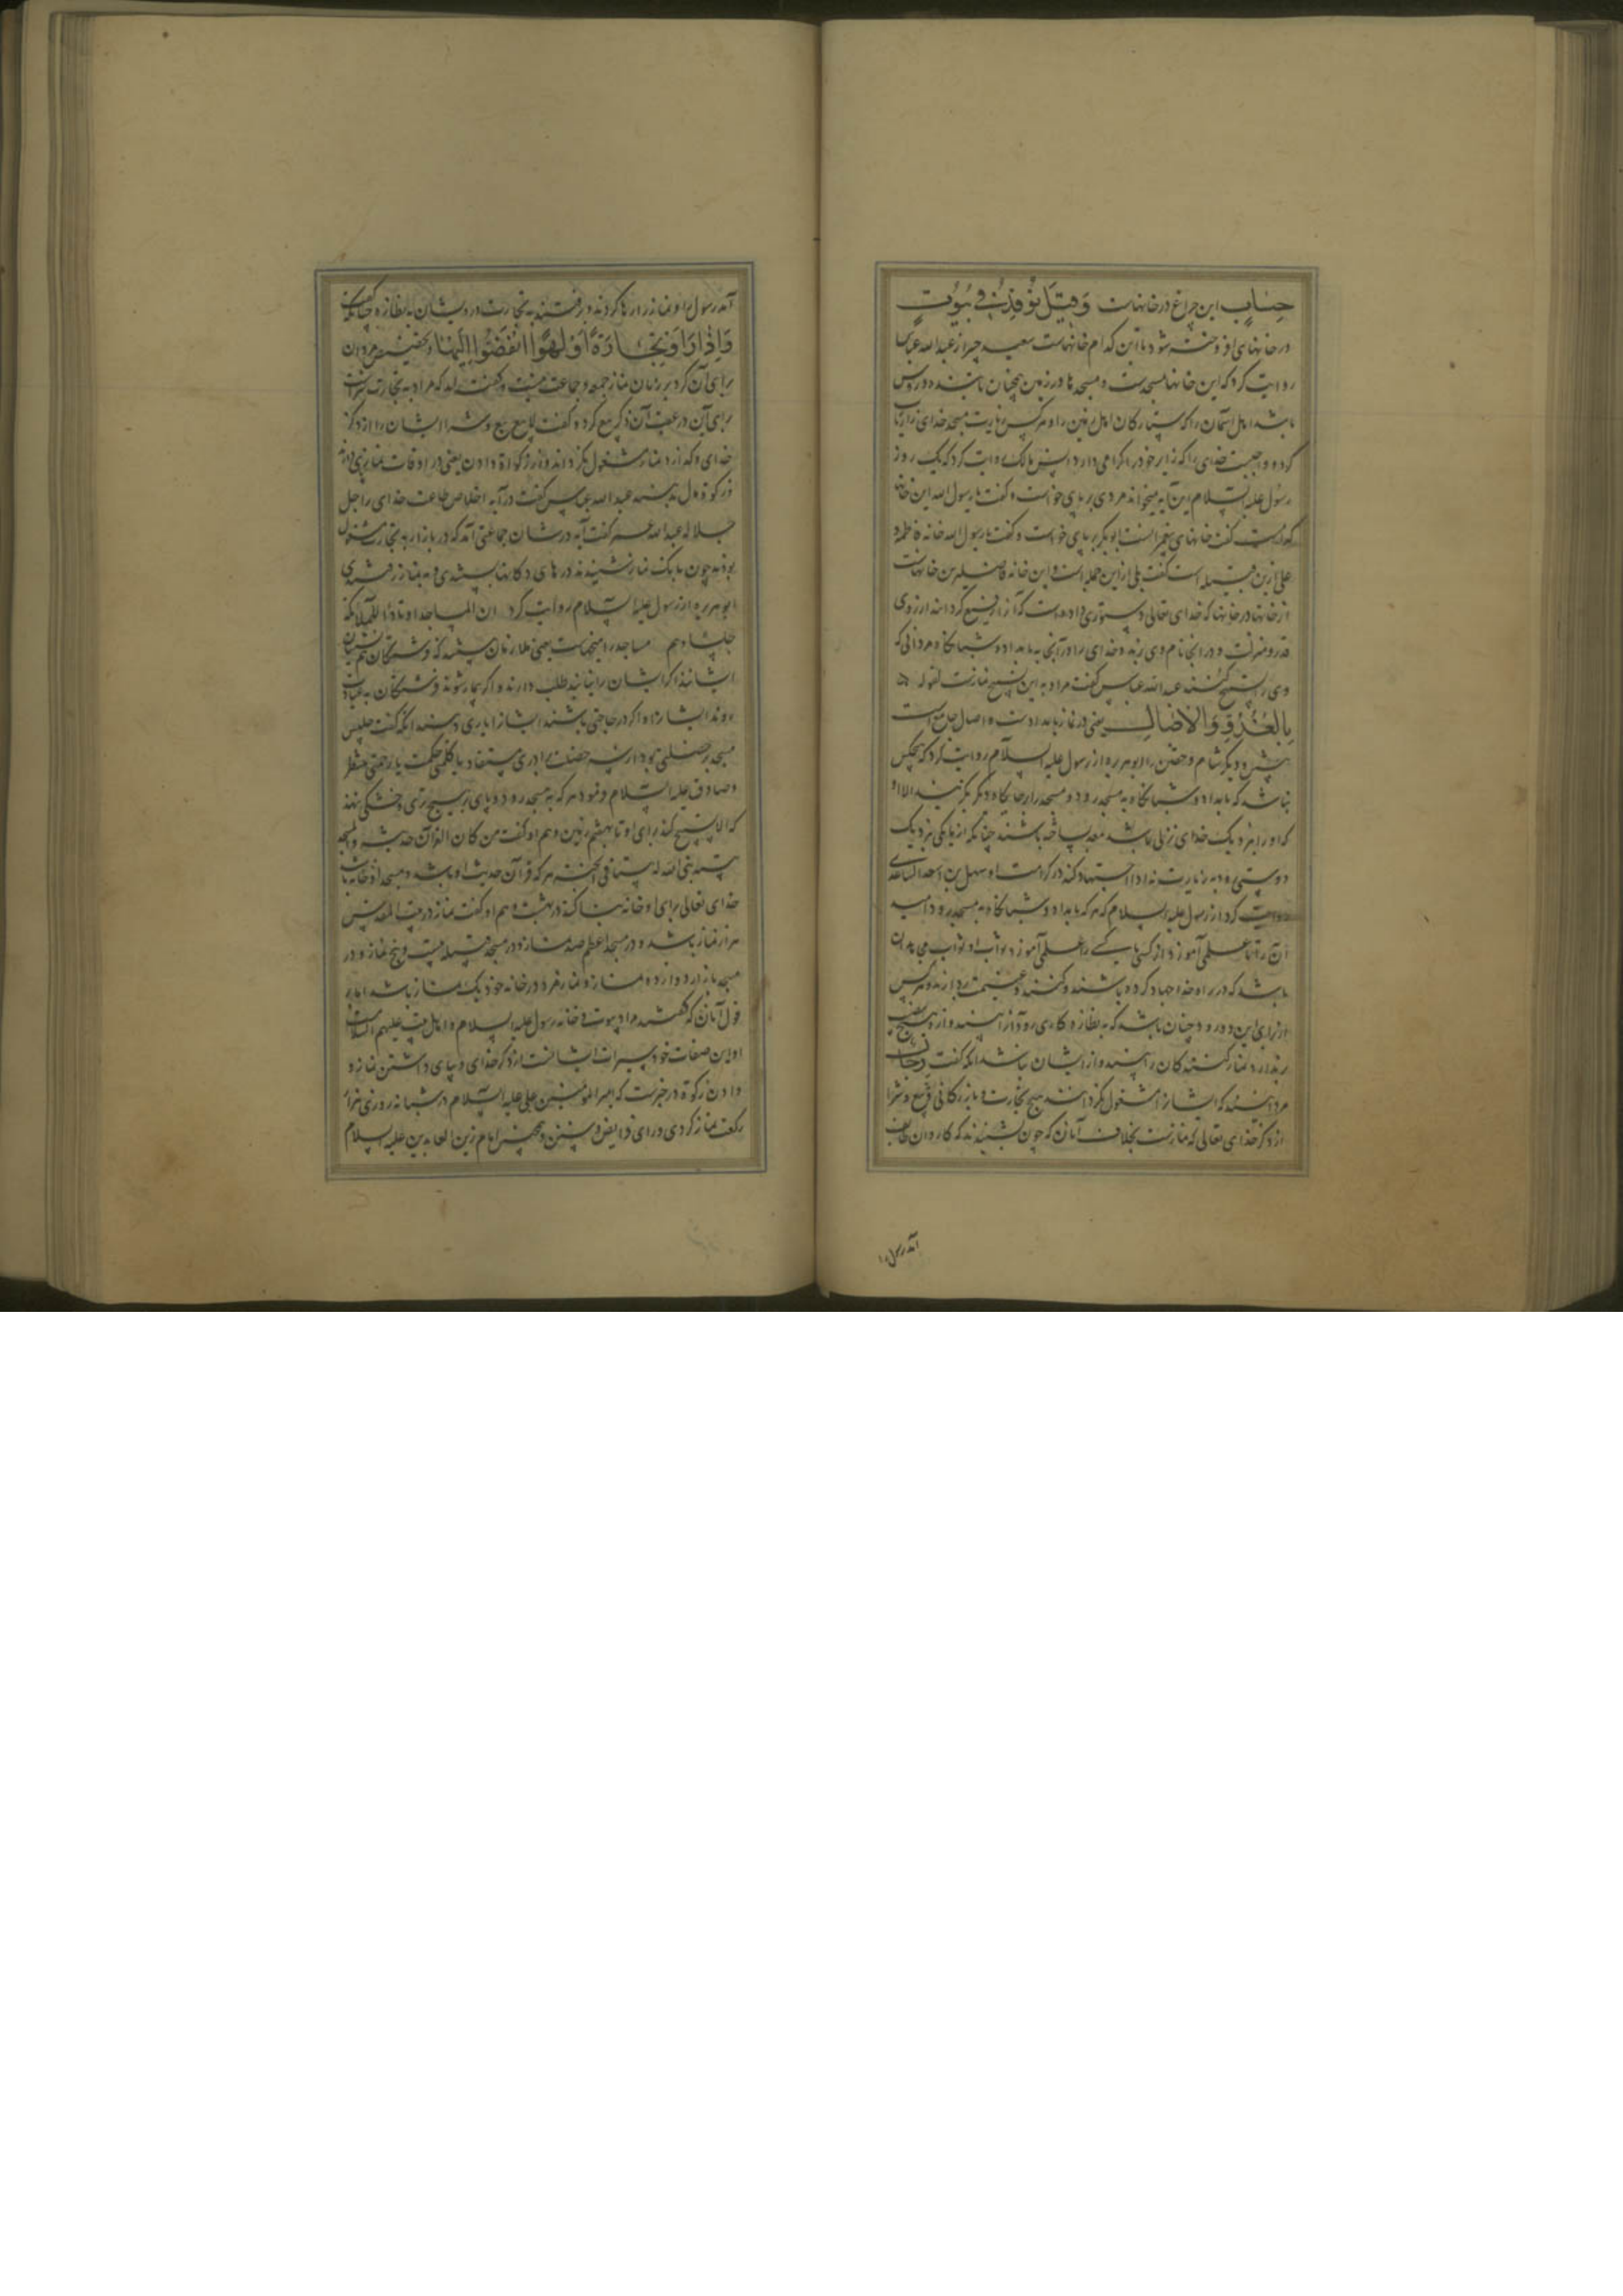 حساب این چراغ در خانهاست وقیل توقد فی بیوت
در خانهای افروخته شود تا این کدام خانهاست سعید جبیر از عبدالله عباس
روایت کرد که این خانها مسجدست و مسجدها در زمین همچنان تابنده و روشن
باشد اهل آسمان را که ستارگان اهل زمین را و هرکس زیارت مسجد خدای را زیارت
کرده و واجبست خدای را که زایر خود را گرامی دارد انس مالک روایت کرد که یک روز
رسول علیه السلام این آیه میخواند مردی بر پای خواست و گفت یا رسول الله این خانها
کدامست گفت خانهای پیغمبرانست ابوبکر بر پای خواست و گفت یا رسول الله خانه فاطمه و
علی ازین قبیله است گفت بلی ازین جمله است و این خانه فاضلترین خانهاست
از خانها در خانها که خدای تعالی دستوری داده است که آنرا رفیع گردانند از روی
قدر و منزلت و در آنجا نام وی برند و خدای را در آنجا به بامداد و شبانگاه مردانی که
وی را تسبیح کنند عبدالله عباس گفت مراد به این تسبیح نمازست لقوله
بالغدو والآصال یعنی در نماز بامداد است و اصال جامع است
پیشین و دیگر شام و خفتن را ابوهریره از رسول علیه السلام روایت کرد که هیچکس
نباشد که بامداد و شبانگاه به مسجد رود و مسجد را بر جایگاه دیگر بگزیند الا او
که او را بنزدیک خدای نزلی باشد معد ساخته باشند چنانکه از ما یکی نزدیک
دوستی رود به زیارت نه او را اجتهاد کند در کرامت او سهل بن اسعد الساعدی
روایت کرد از رسول علیه السلام که هرکه بامداد و شبانگاه به مسجد رود و امید
آن را تا علمی آموزد از کسی یا کسی را علمی آموزد ثواب او ثواب مجاهدان
باشد که در راه خدا جهاد کرده باشند و کشند و غنیمت بردارند و هرکس
از برای این دو رود چنان باشد که به نظاره کاری رود آنرا بیند و از و هیچ
ندارد نماز کنندگان را بیند و از ایشان نباشد آنکه گفت رجال
مردانیند که ایشانرا مشغول نگرداند هیچ تجارت و بازرگانی و بیع و شرا
از ذکر خدای تعالی که نمازست بخلاف آنان که چون بشنیدند که کاروان طایف
آمد رسول را
آمد رسول را و نماز را رها کردند و برفتند به تجارت در ویشان به نظاره چنانکه گفت
وَإِذَا رَأَوْا تِجَارَةً أَوْ لَهْوًا انْفَضُّوا إِلَيْهَا و تخصیص مردان
برای آن کرد بر زنان نماز جمعه و جماعت نیست و گفتند که مراد به تجارت شراست
برای آن در عقب آن ذکر بیع کرده و گفت لا بیع بیع و شرا ایشان را از ذکر
خدای و گذارد نماز مشغول نگرداند و از زکوة دادن یعنی در اوقات نماز و زکوة
زکوة مال بدهند عبدالله عباس گفت در آیه اخلاص طاعت خدای را جل
جلاله عبدالله عمر گفت آیه در شان جماعتی آمد که در بازار به تجارت مشغول
بودند چون بانگ نماز شنیدند درهای دکانها ببستندی و به نماز رفتندی
ابوهریره از رسول علیه السلام روایت کرد ان للمساجد اوتادا الملائکة
جلساؤهم مساجد را میخهاست یعنی ملازمان بیشند که فرشتگان همنشینان
ایشانند اگر ایشان را نیابند طلب دارند و اگر بیمار شوند فرشتگان به عیادت
روند ایشانرا و اگر در حاجتی باشند ایشانرا یاری دهند آنگه گفت جلیس
مسجد بر خصلتی بود از سه خصلت برادری مستفاد یا کلمتی حکمت یا رحمتی منتظر
و صادق علیه السلام فرمود هرکه به مسجد رود و پای بر هیچ تری و خشکی ننهد
که الا تسبیح کند برای او تا بهفتم زمین و هم او گفت من کان القرآن حدیثه والمسجد
بیته بنی الله له بیتا فی الجنة هرکه قرآن حدیث او باشد و مسجد او خانه باشد
خدای تعالی برای او خانه بنا کند در بهشت و هم او گفت نماز در بیت المقدس
هزار نماز باشد و در مسجد اعظم صد نماز و در مسجد قبیله بیست و پنج نماز و در
مسجد بازار دوازده نماز و نماز مرد در خانه خود یک نماز باشد اما بر
قول آنان که گفتند مراد بیوت و خانه رسول علیه السلام و اهل بیت علیهم السلام
او این صفات خود سیرت ایشانست از ذکر خدای و بپای داشتن نماز و
دادن زکوة در خبرست که امیر المؤمنین علی علیه السلام در شبانه روزی هزار
رکعت نماز کردی ورای فرایض و سنن و همچنین امام زین العابدین علیه السلام